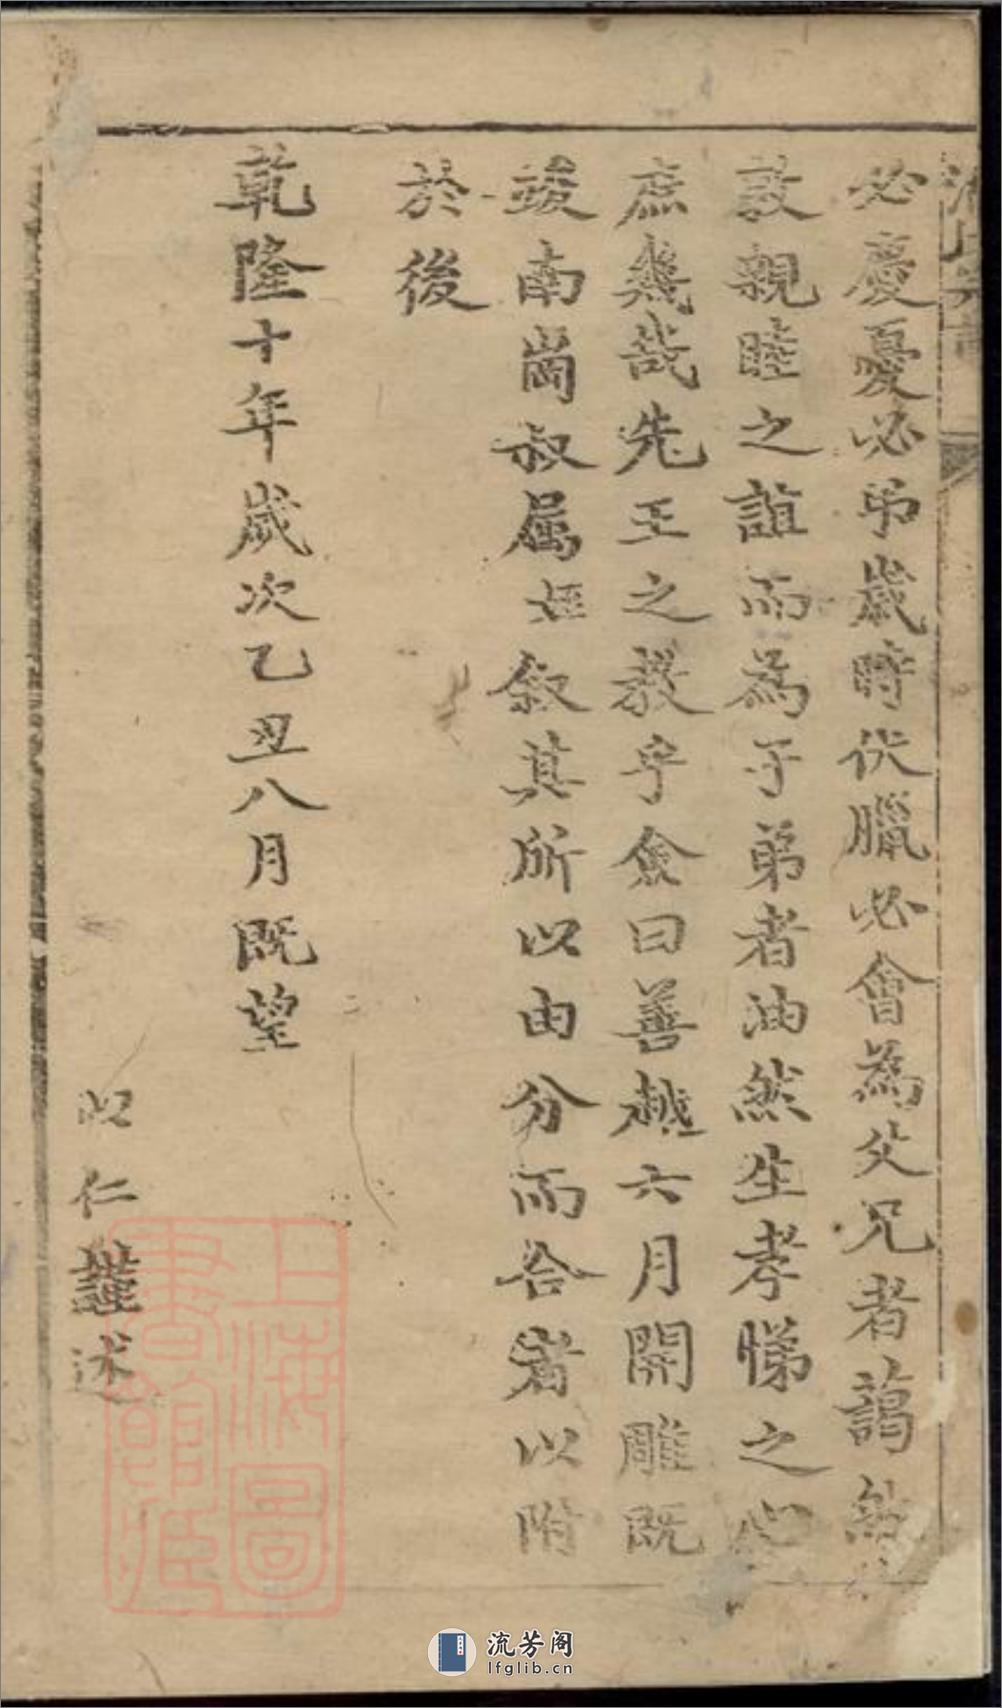 必慶憂必弔歲時伏臘必會為父兄者藹然
敦親睦之誼而為子弟者油然生孝悌之心
庶幾哉先王之教乎僉曰善越六月開雕既
竣南崗叔属姪叙其所以由分而合者以附
於後
乾隆十年歲次乙丑八月既望
以仁謹述
上海圖
書館藏
流芳阁
lfglib.cn